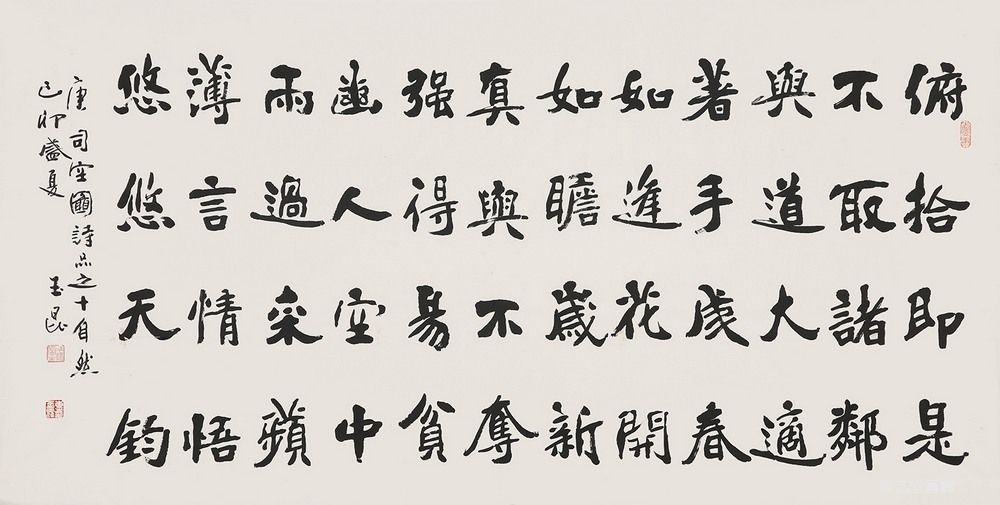 俯拾即是
不取諸鄰
與道大適
著手成春
如逢花開
如瞻歲新
真與不奪
强得易貧
幽人空中
雨過采蘋
薄言情悟
悠悠天鈞
唐司空圖詩品之十自然
己卯盛夏 玉昆